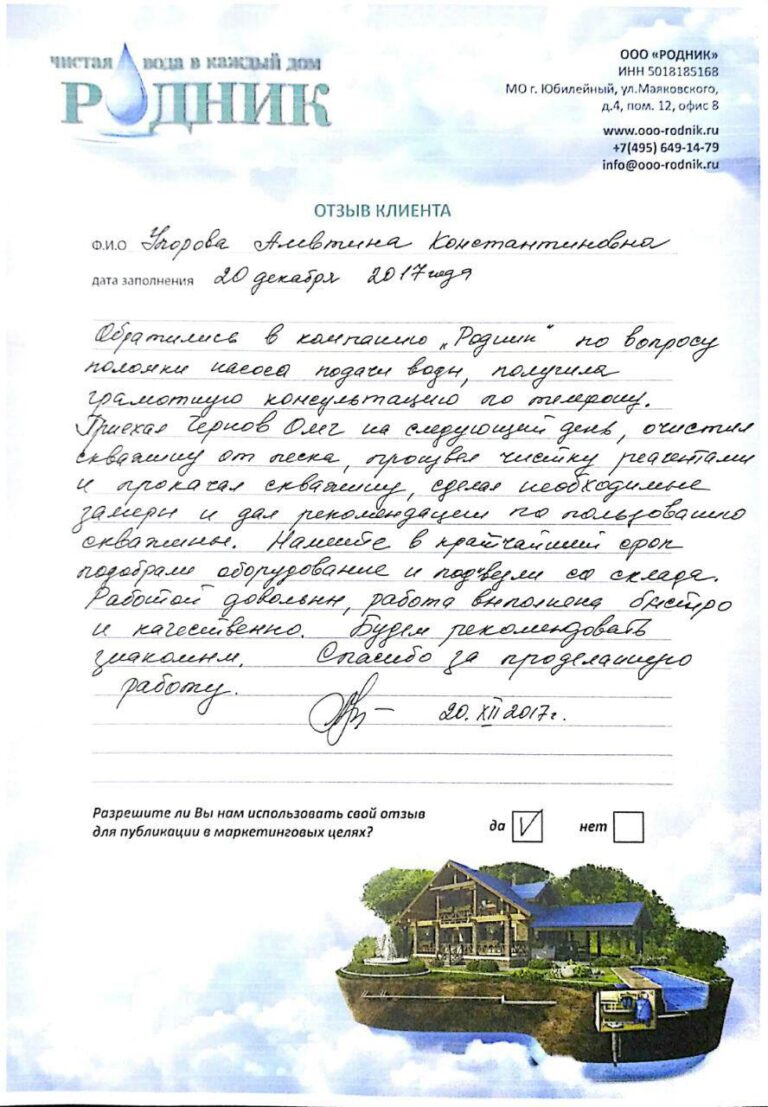 чистая вода в каждый дом
РОДНИК
ООО «РОДНИК»
ИНН 5018185168
МО г. Юбилейный, ул.Маяковского,
д.4, пом. 12, офис 8
www.ooo-rodnik.ru
+7(495) 649-14-79
info@ooo-rodnik.ru
ОТЗЫВ КЛИЕНТА
Ф.И.О Упорова Алевтина Константиновна
дата заполнения 20 декабря 2017 года
Обратились в компанию „Родник“ по вопросу
поломки насоса подачи воды, получила
грамотную консультацию по телефону.
Приехал Чернов Олег на следующий день, очистил
скважину от песка, произвел чистку реагентами
и прокачал скважину, сделал необходимые
замеры и дал рекомендации по пользованию
скважины. Нам в крайчайший срок
подобрали оборудование и подвезли со склада.
Работой довольны, работа выполнена быстро
и качественно. Будем рекомендовать
знакомым. Спасибо за проделанную
работу.
20. XII 2017г.
Разрешите ли Вы нам использовать свой отзыв
для публикации в маркетинговых целях?
да нет